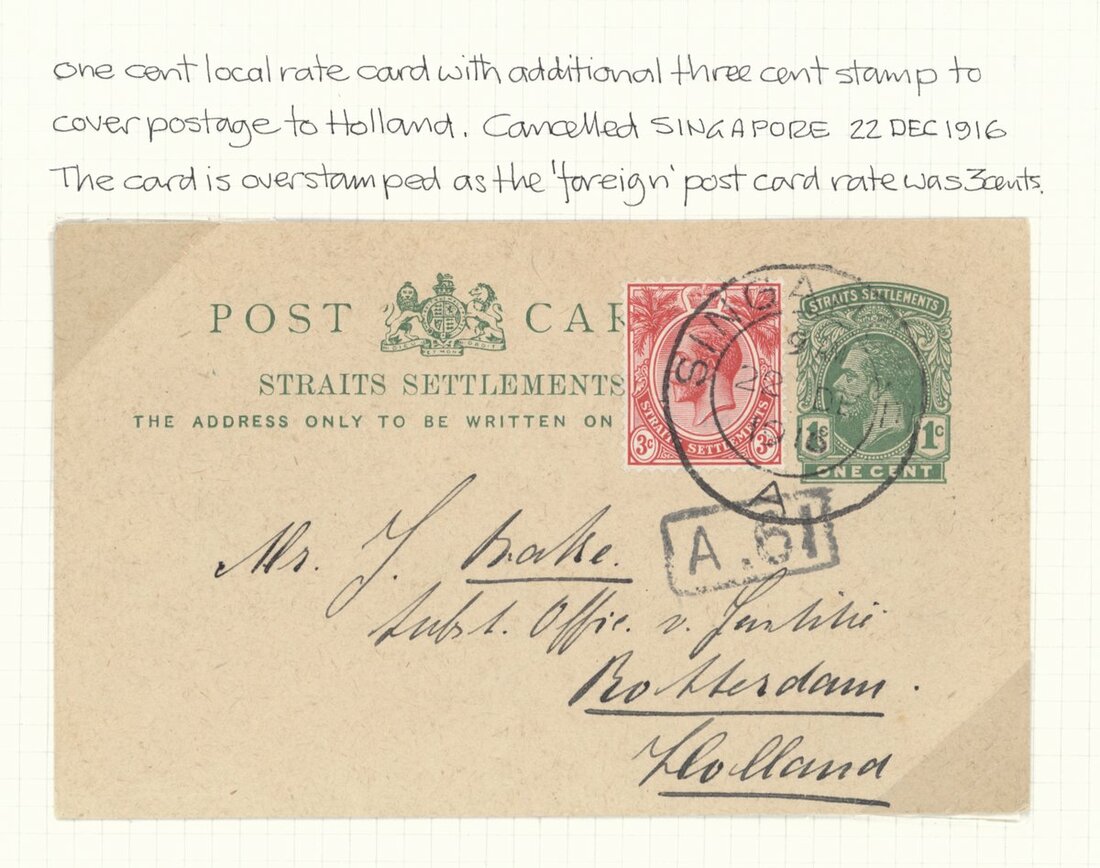 one cent local rate card with additional three cent stamp to
cover postage to Holland. Cancelled SINGAPORE 22 DEC 1916
The card is overstamped as the 'foreign' post card rate was 3cents.
POST CAR
STRAITS SETTLEMENTS
THE ADDRESS ONLY TO BE WRITTEN ON
3c STRAITS SETTLEMENTS 3c
STRAITS SETTLEMENTS
1c 1c
ONE CENT
SINGA
22 DE
1916
A
A.61
Mr. J. Bakke.
Subst. Offic. v. Justitie
Rotterdam.
Holland